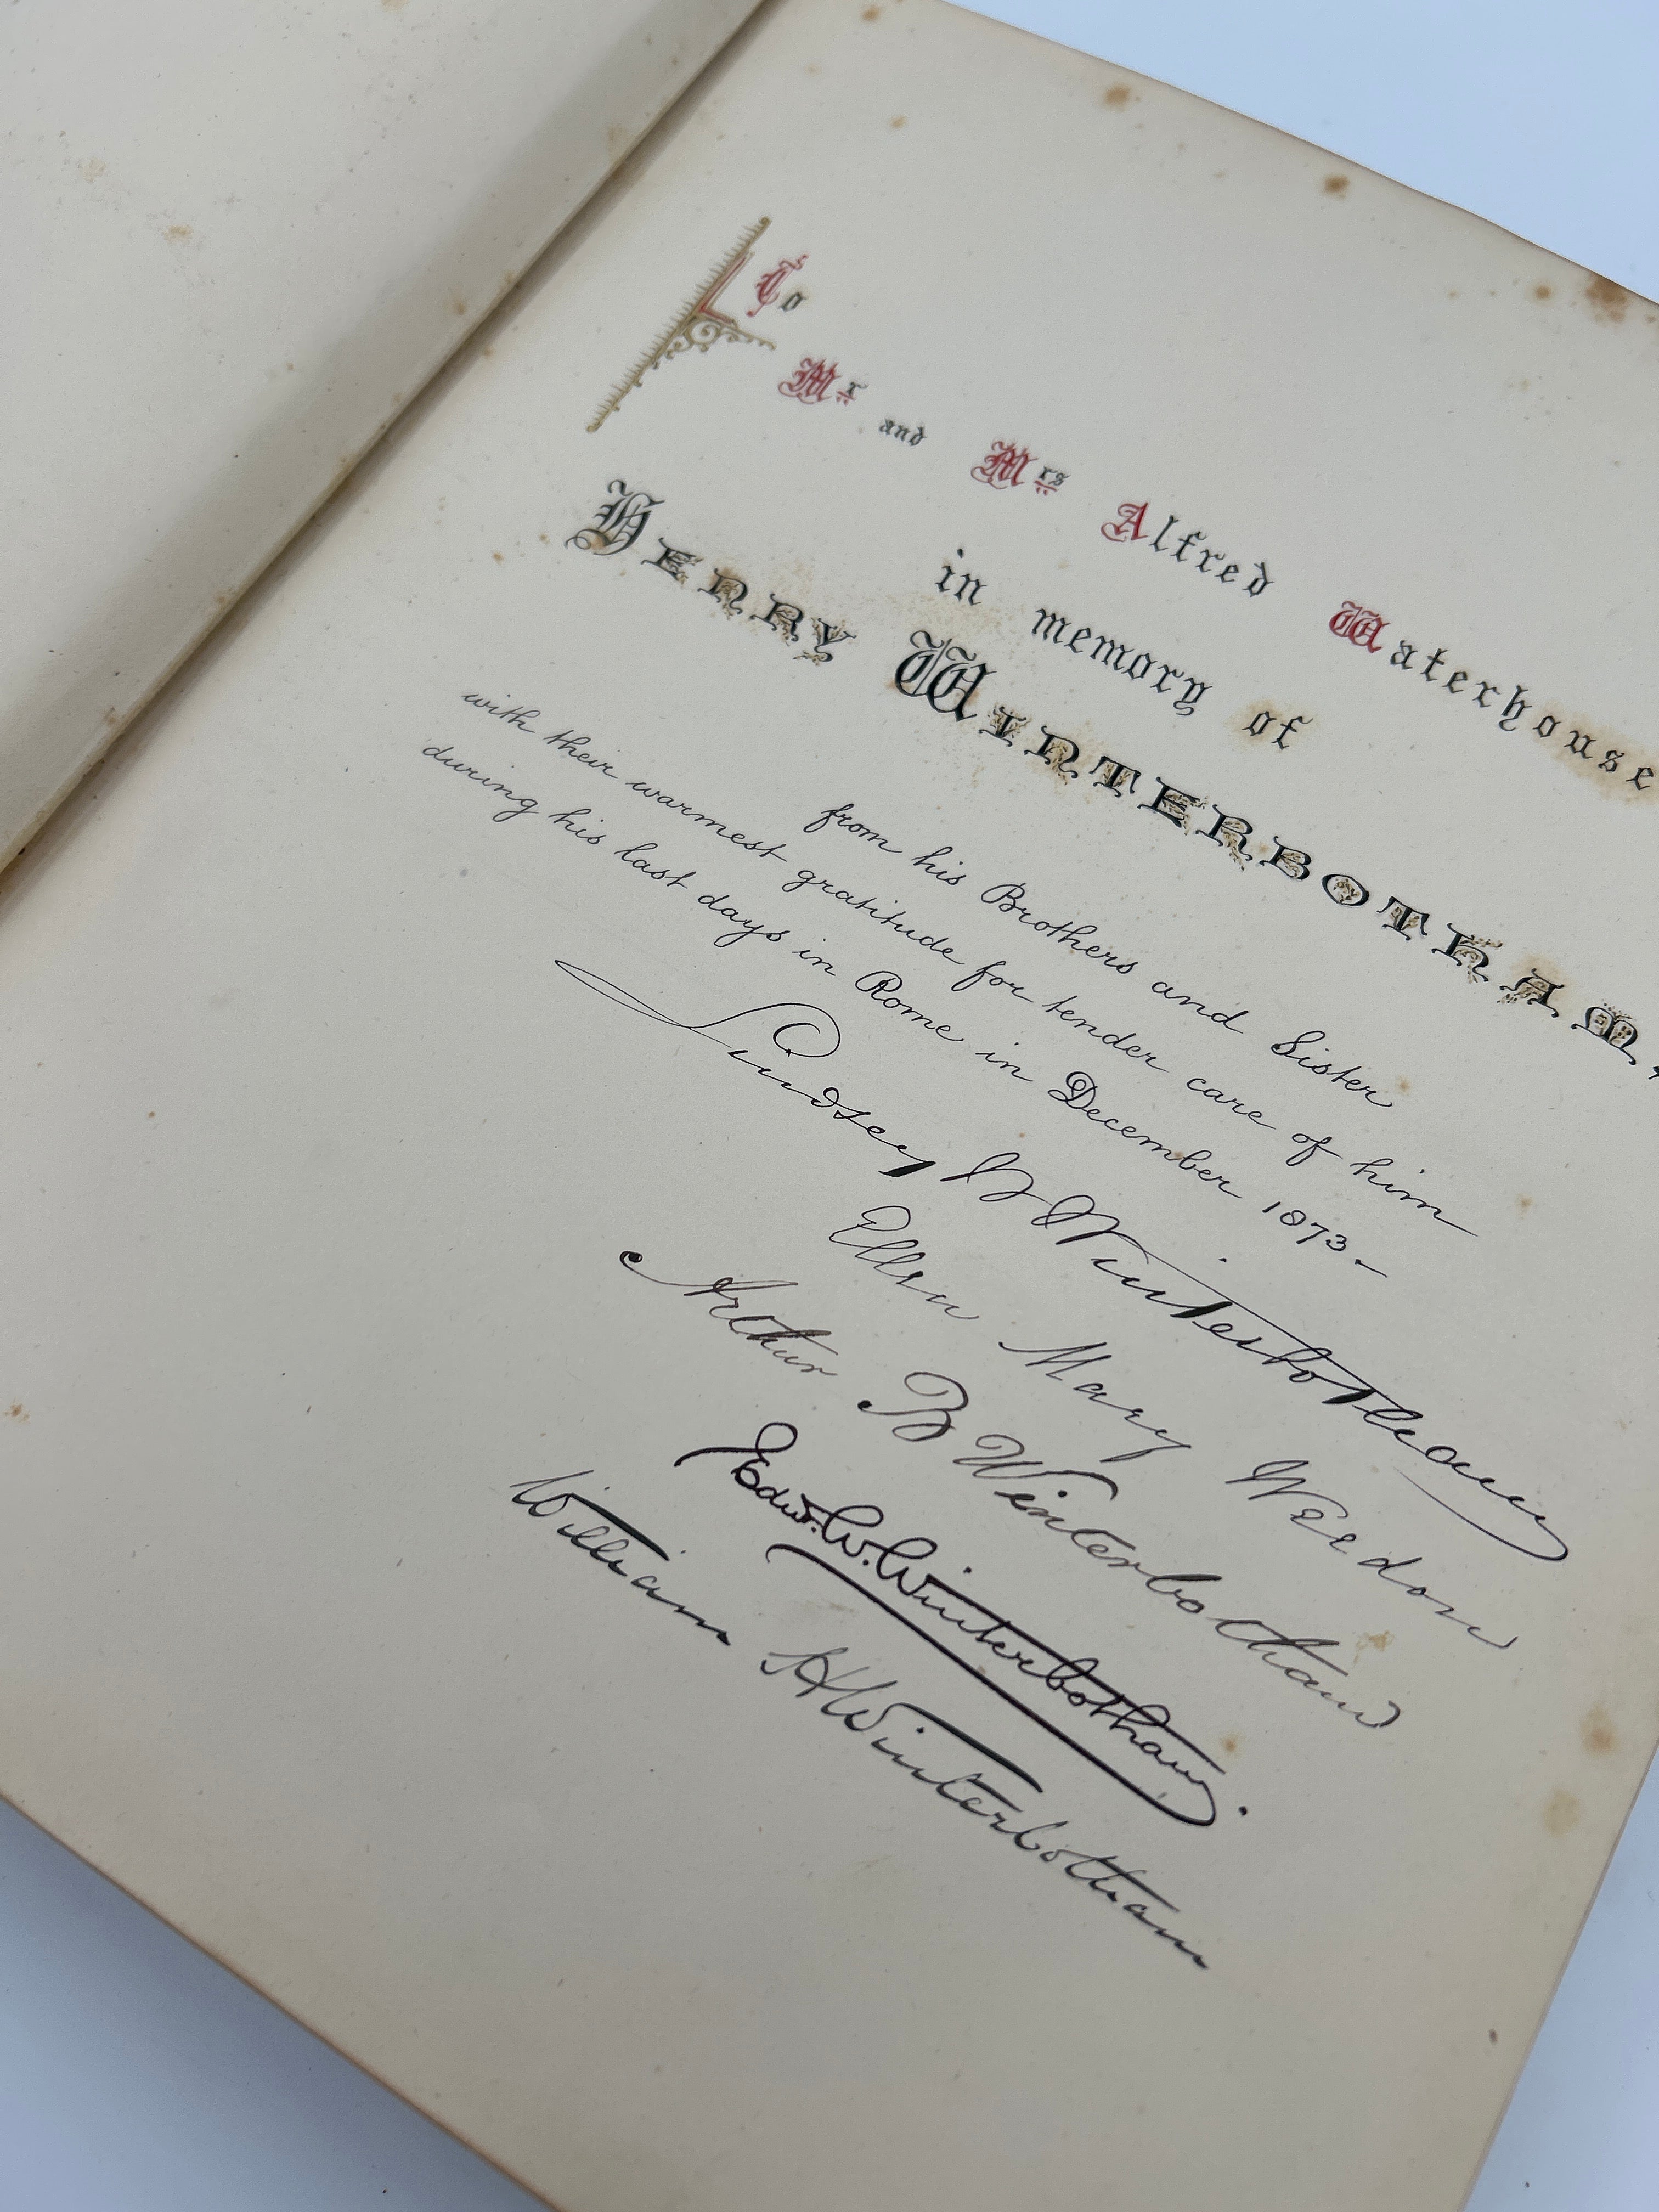 To
Mr and Mrs Alfred Waterhouse
in memory of
HENRY WINTERBOTHAM,
from his Brothers and Sister
with their warmest gratitude for tender care of him
during his last days in Rome in December 1873.—
Lindsey W Winterbotham
Ellen Mary Weedon
Arthur B Winterbotham
Edw. W. Winterbotham.
William H Winterbotham